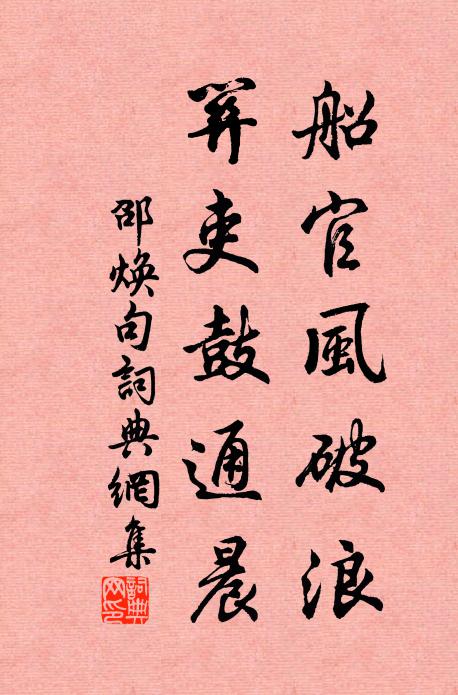 船官風破浪
吏鼓通晨
邵煥句詞典網集
詞典网印